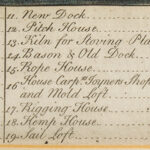 11. New Dock.
12. Pitch House.
13. Kiln for Stoving Pla
14. Bason & Old Dock.
15. Rope House.
16. House Carprs. Joyners Shop
and Mold Loft.
17. Rigging House.
18. Hemp House.
19. Sail Loft.